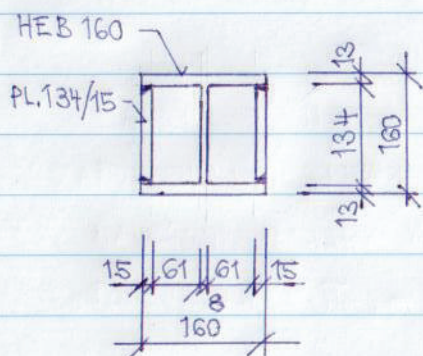 HEB 160
PL.134/15
13
134
160
13
15 61 61 15
8
160